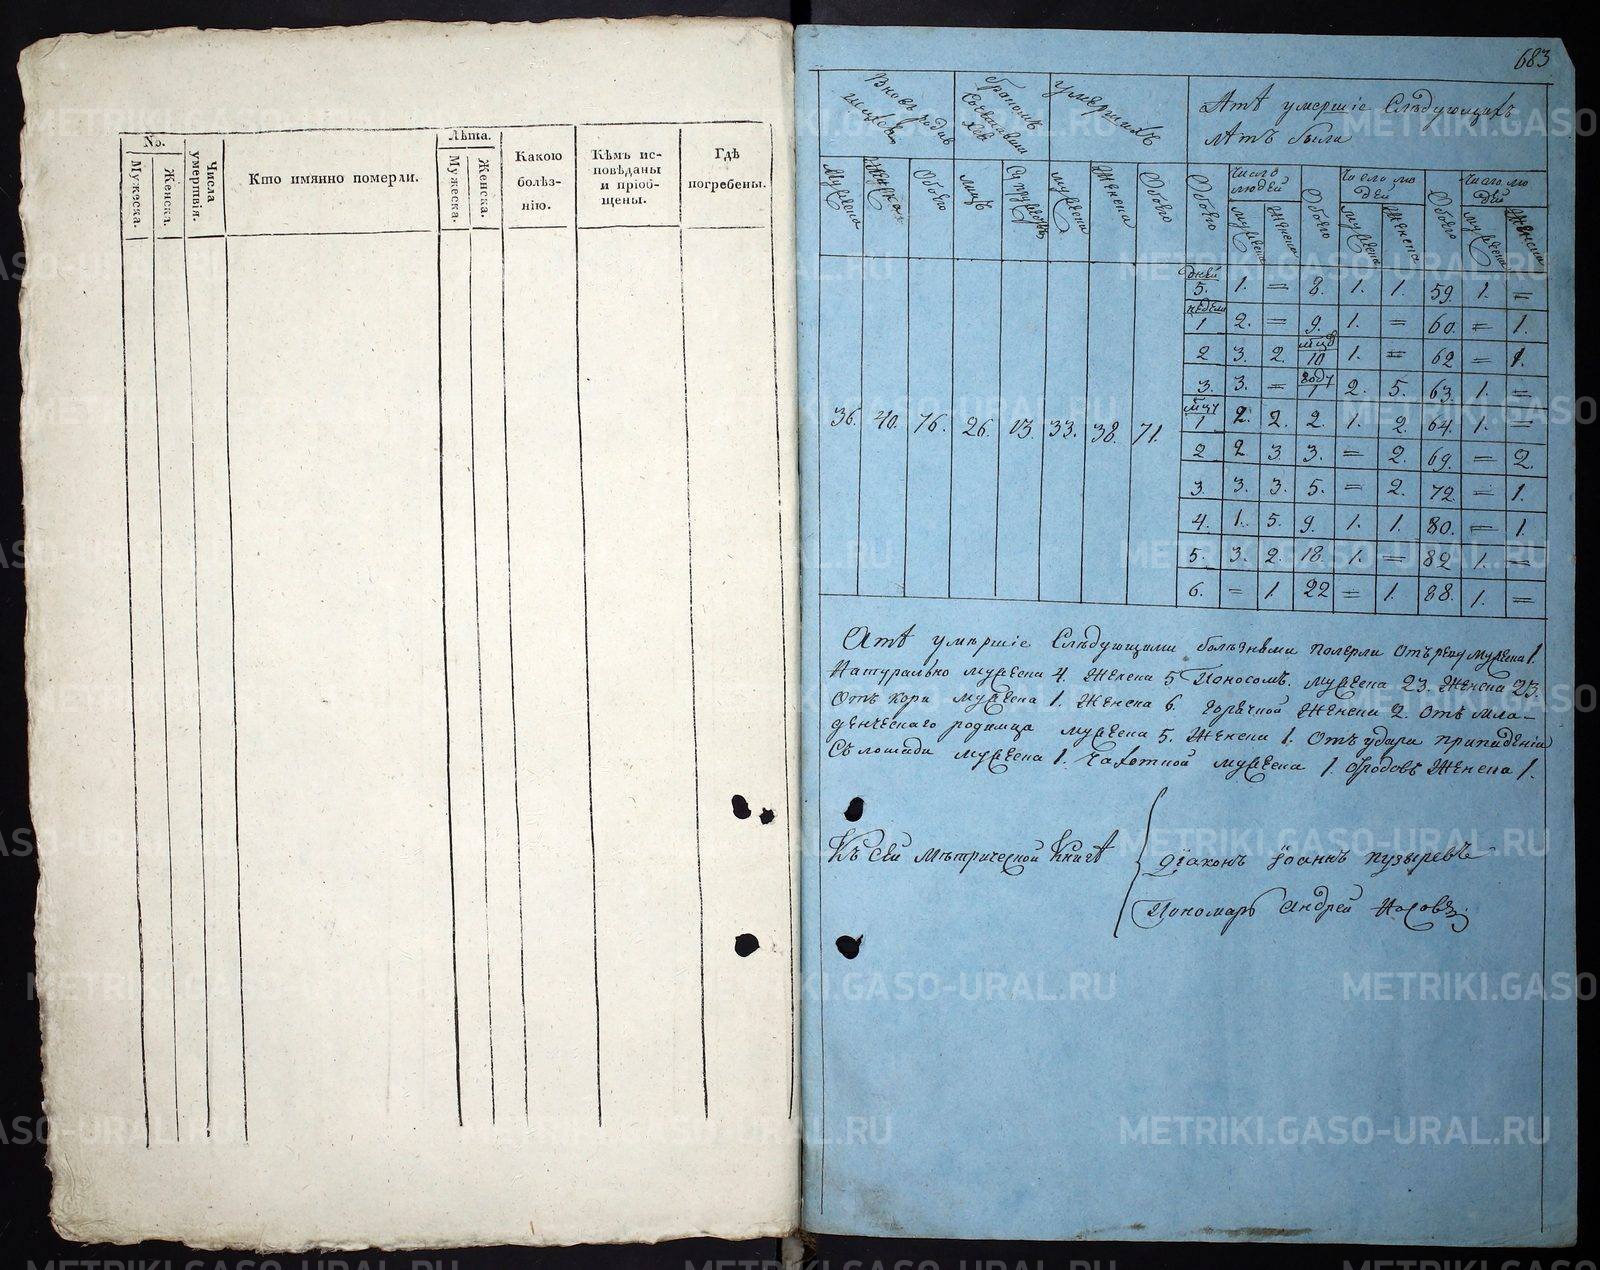 №.
Мужеска.
Женска.
Числа умертвія.
Кто имянно померли.
Лѣта.
Мужеска.
Женска.
Какою
болѣз-
нію.
Кѣмъ ис-
повѣданы
и пріоб-
щены.
Гдѣ
погребены.
683
Вновь родив
шихся
бракомъ
Сочетавши
хся
умершихъ
Атѣ умершіе Слѣдующихъ
лѣтъ были
Мужеска
Женска
Обоего
лицъ
Супружовъ
мужеска
Женска
Обоего
Обоего
Число
людей
мужеска
Женска
Обоего
Число лю
дей
мужеска
Женска
Обоего
Число лю
дей
мужеска
Женска
36. 40. 76. 26. 13. 33. 38. 71.
дней
5. 1. = 8. 1. 1. 59. 1. =
недели
1 2. = 9. 1. = 60. = 1.
2 3. 2. мцѣ 10 1. = 62 = 1.
3. 3. = году 1 2. 5. 63. 1. =
мцу
1 2. 2. 2. 1. 2. 64. 1. =
2 2 3 3. = 2. 69. = 2.
3. 3. 3. 5. = 2. 72. = 1.
4. 1. 5. 9. 1. 1. 80. = 1.
5. 3. 2. 18. 1. = 82. 1. =
6. = 1. 22 = 1. 88. 1. =
Атѣ умершіе Слѣдующими болѣзнями померли Отъ мужеска 1.
Натурально мужеска 4. Женска 5 Поносомъ, мужеска 23. Женска 23.
Отъ кори мужеска 1. Женска 6. горячкой Женска 2. Отъ мла-
денческаго родимца мужеска 5. Женска 1. Отъ удара припаденія
Съ лошади мужеска 1. Чахоткой мужеска 1. Женска 1.
Къ Сей Метрической Книгѣ
Діаконъ Іоаннъ Пузыревъ
Пономарь Андрей Носовъ
METRIKI.GASO-URAL.RU